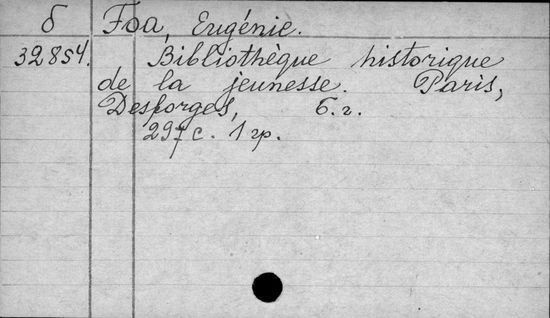 б Foa, Eugénie.
32854. Bibliothèque historique
de la jeunesse. Paris,
Desforges, б. г.
297 с. 1 гр.